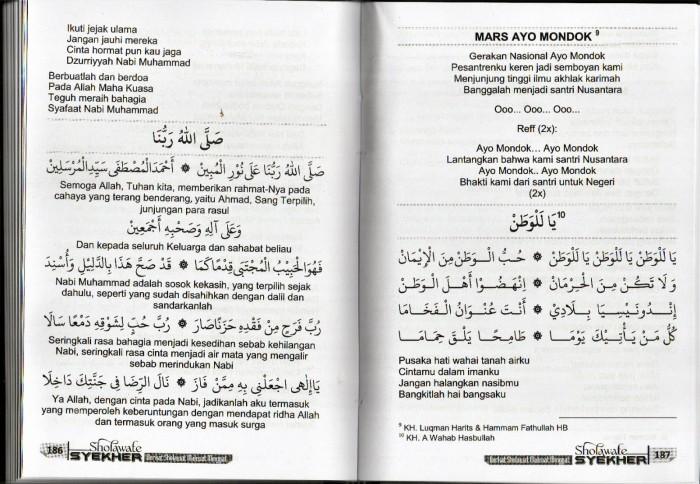 Ikuti jejak ulama
Jangan jauhi mereka
Cinta hormat pun kau jaga
Dzurriyyah Nabi Muhammad
Berbuatlah dan berdoa
Pada Allah Maha Kuasa
Teguh meraih bahagia
Syafaat Nabi Muhammad
صَلَّى اللهُ رَبُّنَا
صَلَّى اللهُ رَبُّنَا عَلَى نُوْرِ الْمُبِيْنَ ۞ أَحْمَدَ الْمُصْطَفَى سَيِّدِ الْمُرْسَلِيْنَ
Semoga Allah, Tuhan kita, memberikan rahmat-Nya pada
cahaya yang terang benderang, yaitu Ahmad, Sang Terpilih,
junjungan para rasul
وَعَلَى آلِهِ وَصَحْبِهِ أَجْمَعِيْنَ
Dan kepada seluruh Keluarga dan sahabat beliau
فَهُوَ الْحَبِيْبُ الْمُجْتَبَى قِدْمًا كَمَا ۞ قَدْ صَحَّ هَذَا بِالدَّلِيْلِ وَأُسْنِدَ
Nabi Muhammad adalah sosok kekasih, yang terpilih sejak
dahulu, seperti yang sudah disahihkan dengan dalil dan
sandarkanlah
رُبَّ فَرَحٍ مِنْ فَقْدِهِ حَزْنًا صَارَ ۞ رُبَّ حُبٍّ لِشَوْقِهِ دَمْعًا سَالَا
Seringkali rasa bahagia menjadi kesedihan sebab kehilangan
Nabi, seringkali rasa cinta menjadi air mata yang mengalir
sebab merindukan Nabi
يَاإِلٰهِى اجْعَلْنِي بِهِ مِمَّنْ فَازَ ۞ نَالَ الرِّضَا فِي جَنَّتِكَ دَاخِلَا
Ya Allah, dengan cinta pada Nabi, jadikanlah aku termasuk
yang memperoleh keberuntungan dengan mendapat ridha Allah
dan termasuk orang yang masuk surga
186 Sholawate
SYEKHER
Berkat Sholawat Rahmat Nikmat
MARS AYO MONDOK 9
Gerakan Nasional Ayo Mondok
Pesantrenku keren jadi semboyan kami
Menjunjung tinggi ilmu akhlak karimah
Banggalah menjadi santri Nusantara
Ooo... Ooo... Ooo...
Reff (2x):
Ayo Mondok... Ayo Mondok
Lantangkan bahwa kami santri Nusantara
Ayo Mondok.. Ayo Mondok
Bhakti kami dari santri untuk Negeri
(2x)
يَا لَلْوَطَنْ 10
يَا لَلْوَطَنْ يَا لَلْوَطَنْ يَا لَلْوَطَنْ ۞ حُبُّ الْوَطَنْ مِنَ الْإِيْمَانْ
وَلَا تَكُنْ مِنَ الْحِرْمَانْ ۞ اِنْهَضُوْا أَهْلَ الْوَطَنْ
إِنْدُونَيْسِيَا بِلَادِيْ ۞ أَنْتَ عُنْوَانُ الْفَخَامَا
كُلُّ مَنْ يَأْتِيْكَ يَوْمًا ۞ طَامِحًا يَلْقَ حِمَامَا
Pusaka hati wahai tanah airku
Cintamu dalam imanku
Jangan halangkan nasibmu
Bangkitlah hai bangsaku
9 KH. Luqman Harits & Hammam Fathullah HB
10 KH. A Wahab Hasbullah
Sholawate
SYEKHER 187